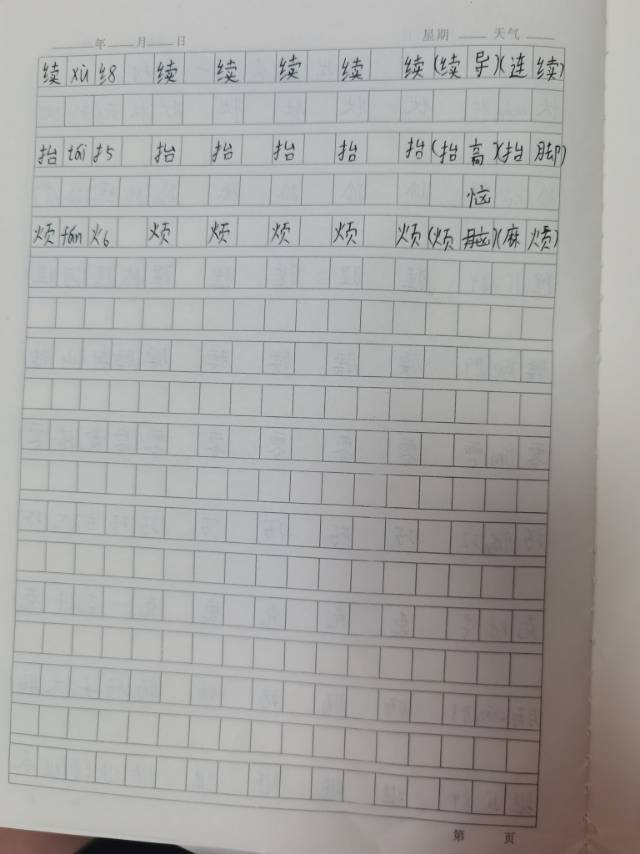 年 月 日 星期 天气
续 xù 纟8 续 续 续 续 续(续 导)(连 续)
抬 tái 扌5 抬 抬 抬 抬 抬(抬 高)(抬 脚)
恼
烦 fán 火6 烦 烦 烦 烦 烦(烦 脑)(麻 烦)
第 页